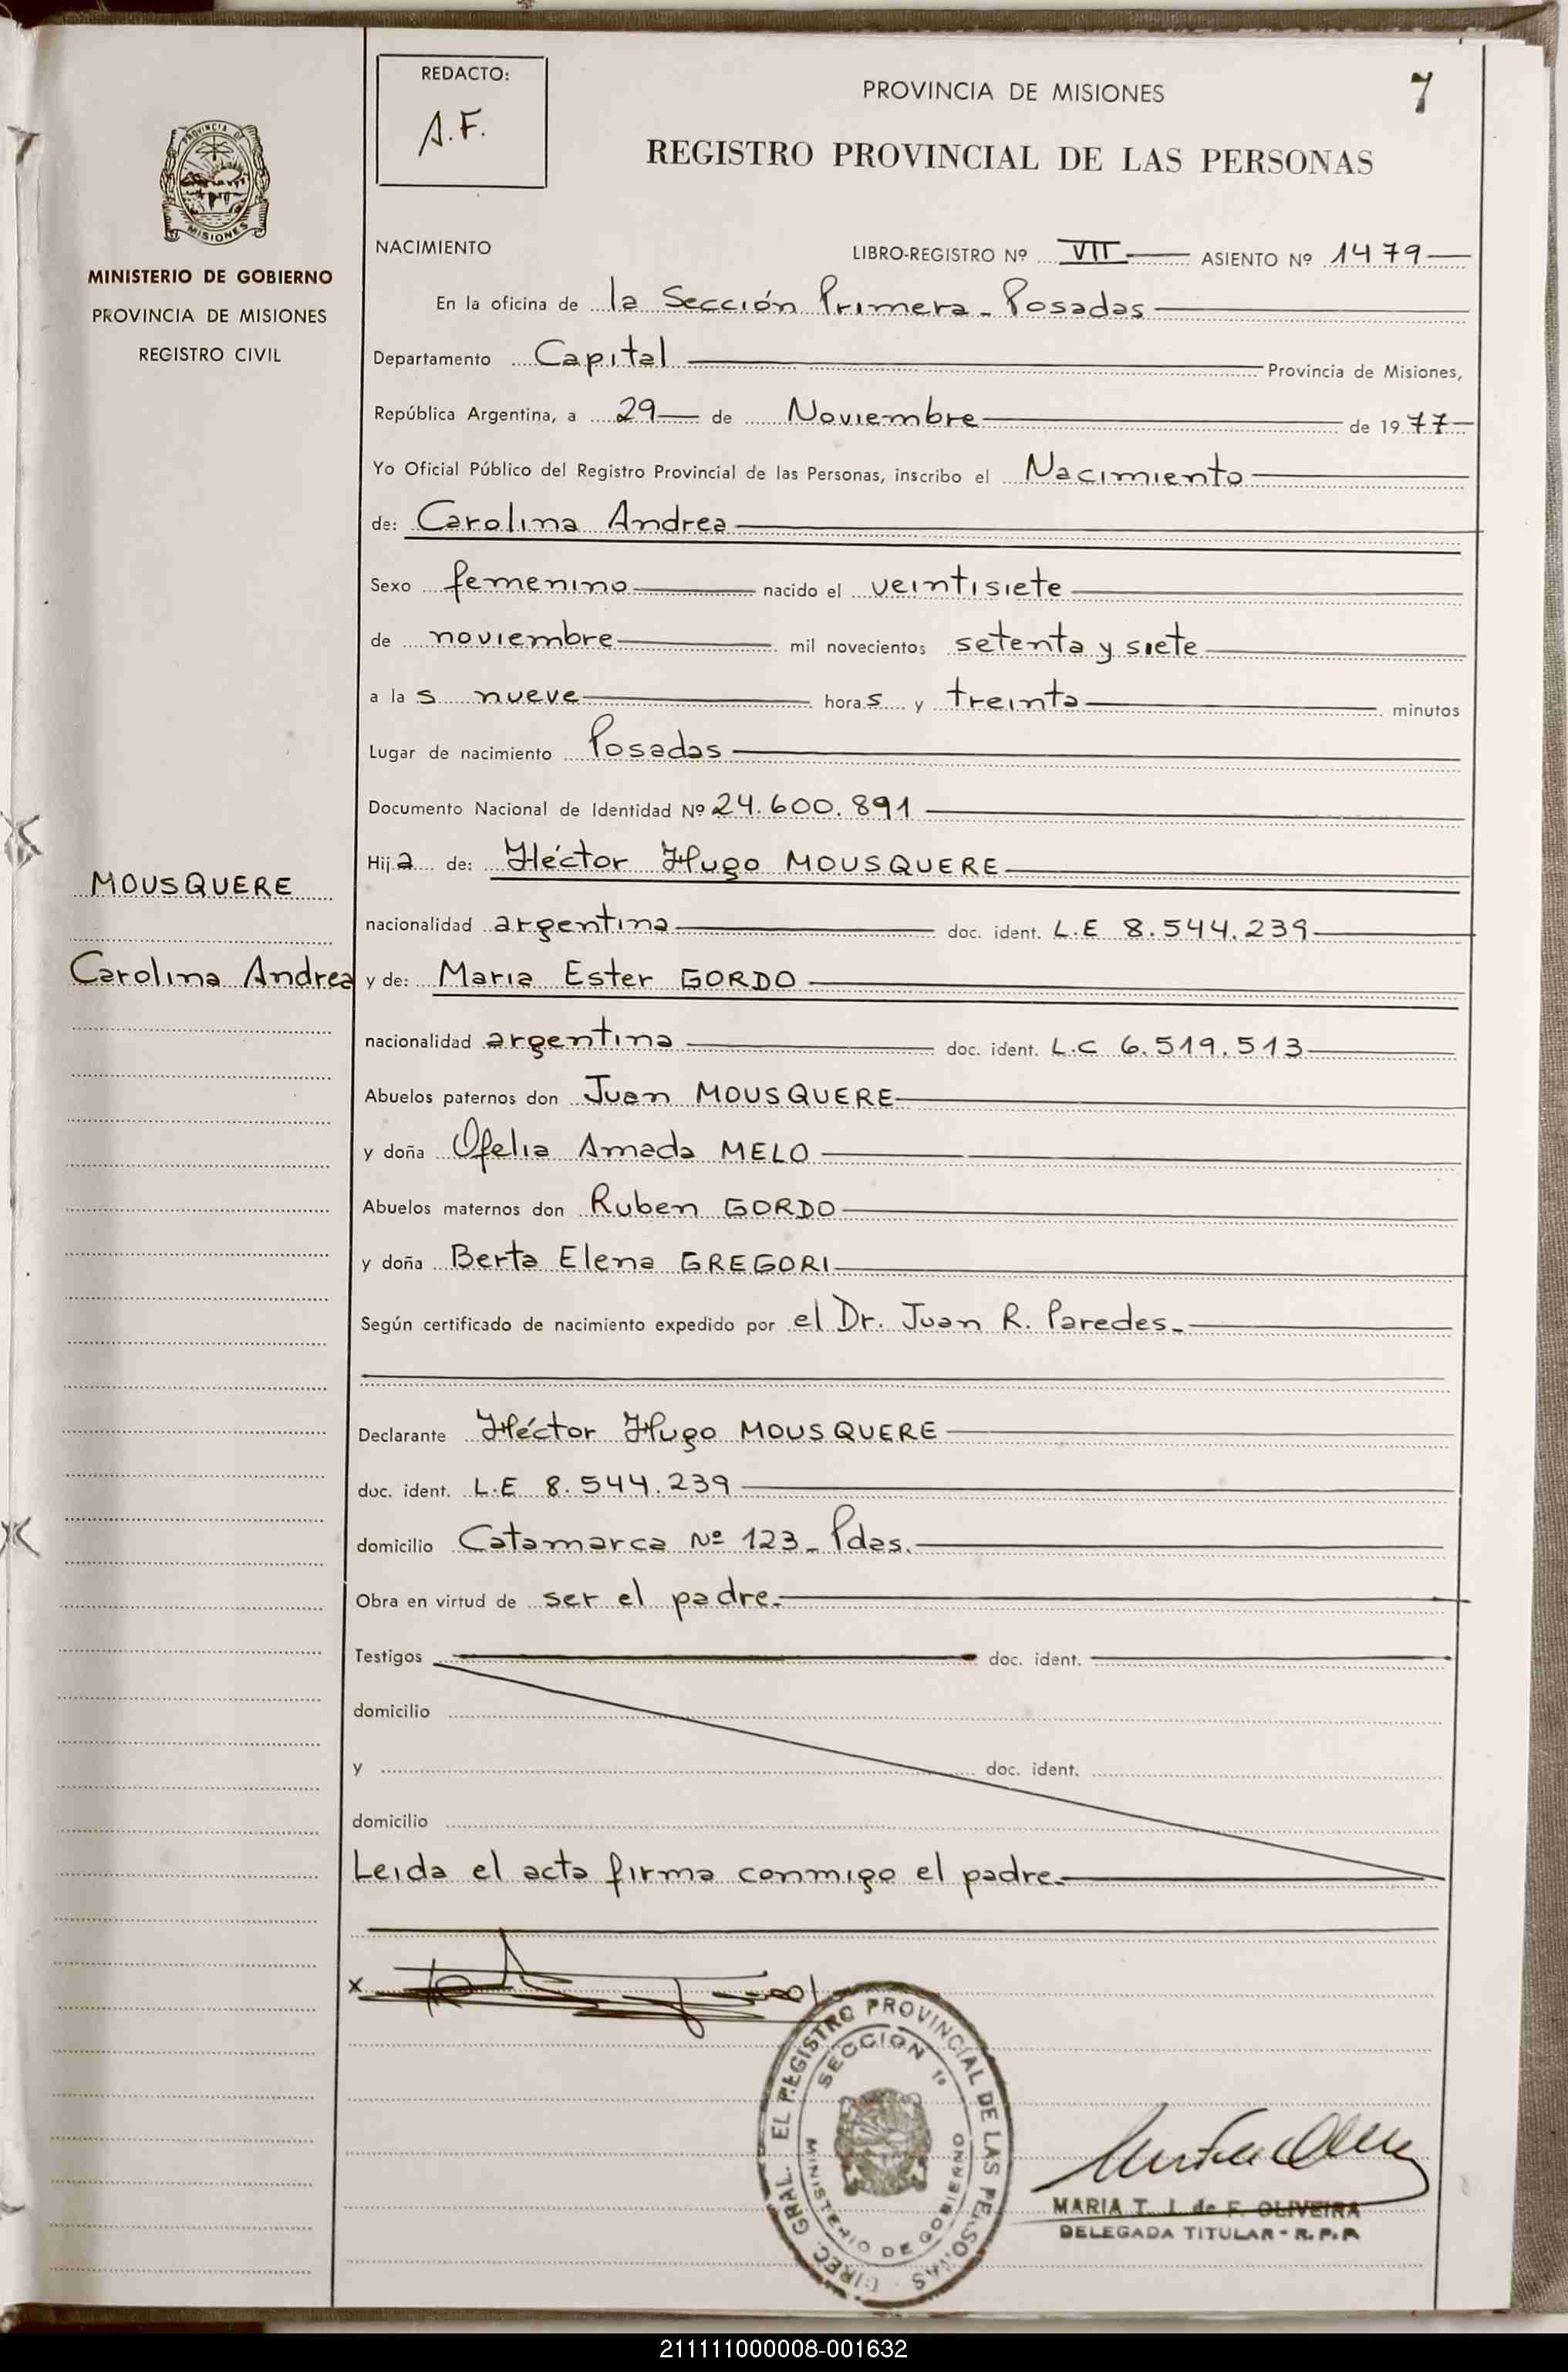 REDACTO:
A.F.
PROVINCIA DE MISIONES
7
REGISTRO PROVINCIAL DE LAS PERSONAS
PROVINCIA DE
MISIONES
MINISTERIO DE GOBIERNO
PROVINCIA DE MISIONES
REGISTRO CIVIL
NACIMIENTO LIBRO-REGISTRO Nº VII ASIENTO Nº 1479
En la oficina de la Sección Primera - Posadas
Departamento Capital Provincia de Misiones,
República Argentina, a 29 de Noviembre de 1977
Yo Oficial Público del Registro Provincial de las Personas, inscribo el Nacimiento
de: Carolina Andrea
Sexo femenino nacido el veintisiete
de noviembre mil novecientos setenta y siete
a las nueve horas y treinta minutos
Lugar de nacimiento Posadas
Documento Nacional de Identidad Nº 24.600.891
Hija de: Héctor Hugo MOUSQUERE
MOUSQUERE
nacionalidad argentina doc. ident. L.E 8.544.239
Carolina Andrea
y de: Maria Ester GORDO
nacionalidad argentina doc. ident. L.C 6.519.513
Abuelos paternos don Juan MOUSQUERE
y doña Ofelia Amada MELO
Abuelos maternos don Ruben GORDO
y doña Berta Elena GREGORI
Según certificado de nacimiento expedido por el Dr. Juan R. Paredes.-
Declarante Héctor Hugo MOUSQUERE
doc. ident. L.E 8.544.239
domicilio Catamarca Nº 123 - Pdas.
Obra en virtud de ser el padre.-
Testigos doc. ident.
domicilio
y doc. ident.
domicilio
Leida el acta firma conmigo el padre.-
x
DIREC. GRAL. EL REGISTRO PROVINCIAL DE LAS PERSONAS
SECCION 1ª
MINISTERIO DE GOBIERNO
MARIA T. J. de F. OLIVEIRA
DELEGADA TITULAR - R.P.P.
211111000008-001632